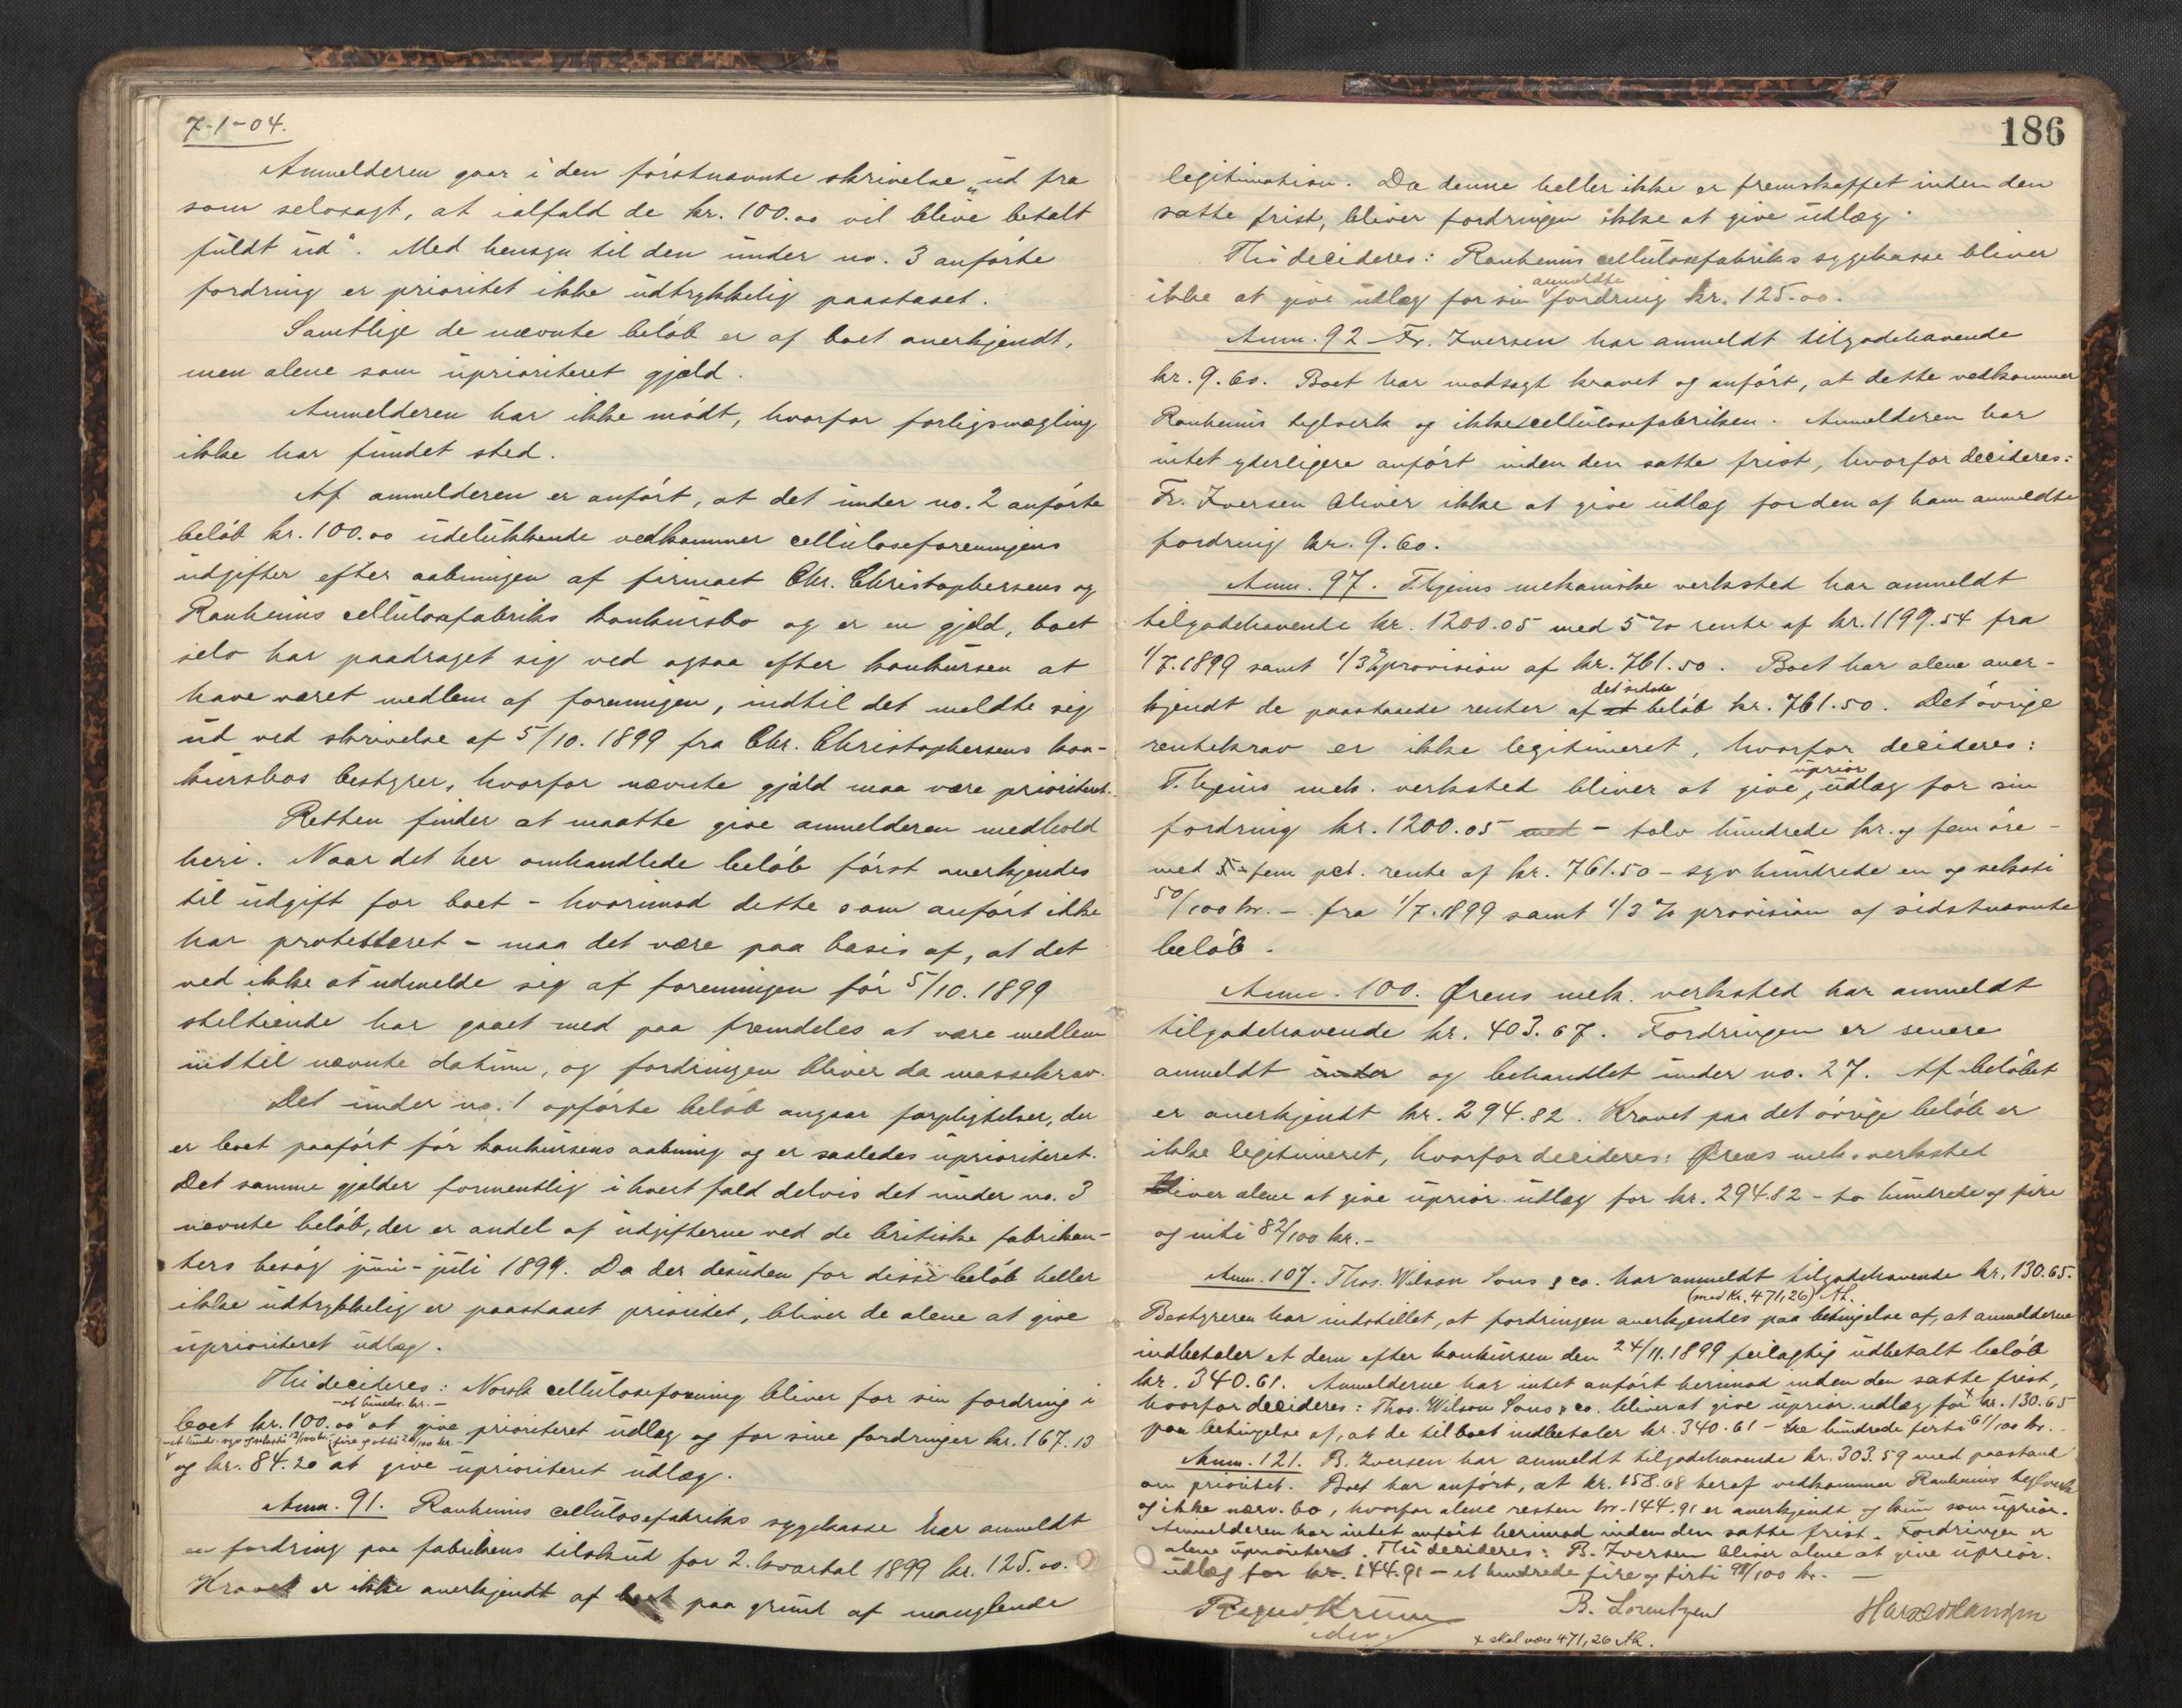 7-1-04.
Anmelderen gaar i den förstnævnte skrivelse „ud fra
som selvsagt, at ialfald de kr. 100.00 vil blive betalt
fuldt ud“. Med hensyn til den under no. 3 anförte
fordring er prioritet ikke udtrykkelig paastaaet.
Samtlige de nævnte belöb er af boet anerkjendt,
men alene som uprioriteret gjæld.
Anmelderen har ikke mödt, hvorfor forligsmægling
ikke har fundet sted.
Af anmelderen er anfört, at det under no. 2 anförte
belöb kr. 100.00 udelukkende vedkommer celluloseforeningens
udgifter efter aabningen af firmaet Chr. Christophersens og
Ranheims cellulosefabriks konkursbo og er en gjæld, boet
selv har paadraget sig ved ogsaa efter konkursen at
have været medlem af foreningen, indtil det meldte sig
ud ved skrivelse af 5/10. 1899 fra Chr. Christophersens kon-
kursbos bestyrer, hvorfor nævnte gjæld maa være prioriteret.
Retten finder at maatte give anmelderen medhold
heri. Naar det her omhandlede belöb först anerkjendes
til udgift for boet - hvorimod dette som anfört ikke
har protesteret - maa det være paa basis af, at det
ved ikke at udmelde sig af foreningen för 5/10. 1899
stiltiende har gaaet med paa fremdeles at være medlem
indtil nævnte datum, og fordringen bliver da massekrav.
Det under no. 1 opförte belöb angaar forpligtelser, der
er boet paafört för konkursens aabning og er saaledes uprioriteret.
Det samme gjælder formentlig i hvert fald delvis det under no. 3
nævnte belöb, der er andel af udgifterne ved de britiske fabrikan-
ters besög juni-juli 1899. Da der desuden for disse belöb heller
ikke udtrykkelig er paastaaet prioritet, bliver de alene at give
uprioriteret udlæg.
Thi decideres: Norsk celluloseforening bliver for sin fordring i
- et hundr. kr. -
boet kr. 100.00 at give prioriteret udlæg og for sine fordringer kr. 167.13
- et hundr. syv og seksti 13/100 kr. - fire og otti 20/100 kr. -
og kr. 84.20 at give uprioriteret udlæg.
Anm. 91. Ranheims cellulosefabriks sygekasse har anmeldt
en fordring paa fabrikens tilskud for 2. kvartal 1899 kr. 125.00.
Kravet er ikke anerkjendt af boet paa grund af manglende
186
legitimation. Da denne heller ikke er fremskaffet inden den
satte frist, bliver fordringen ikke at give udlæg.
Thi decideres: Ranheims cellulosefabriks sygekasse bliver
anmeldte
ikke at give udlæg for sin fordring kr. 125.00.
Anm. 92 Fr. Iversen har anmeldt tilgodehavende
kr. 9.60. Boet har modsagt kravet og anfört, at dette vedkommer
Ranheims teglverk og ikke cellulosefabriken. Anmelderen har
intet yderligere anfört inden den satte frist, hvorfor decideres:
Fr. Iversen bliver ikke at give udlæg for den af ham anmeldte
fordring kr. 9.60.
Anm. 97. T.hjems mekaniske verksted har anmeldt
tilgodehavende kr. 1200.05 med 5 % rente af kr. 1199.54 fra
1/7. 1899 samt 1/3 % provision af kr. 761.50. Boet har alene aner-
det sidste
kjendt de paastaaede renter af et belöb kr. 761.50. Det övrige
rentekrav er ikke legitimeret, hvorfor decideres:
uprior.
T.hjems mek. verksted bliver at give udlæg for sin
fordring kr. 1200.05 med - tolv hundrede kr. og fem öre -
med 5 - fem pct. rente af kr. 761.50 - syv hundrede en og seksti
50/100 kr. - fra 1/7. 1899 samt 1/3 % provision af sidstnævnte
belöb.
Anm. 100. Ørens mek. verksted har anmeldt
tilgodehavende kr. 403.67. Fordringen er senere
anmeldt under og behandlet under no. 27. Af belöbet
er anerkjendt kr. 294.82. Kravet paa det övrige belöb er
ikke legitimeret, hvorfor decideres: Ørens mek. verksted
bliver alene at give uprior. udlæg for kr. 294.82 - to hundrede og fire
og niti 82/100 kr. -
Anm. 107. Thos. Wilson Sons & co. har anmeldt tilgodehavende kr. 130.65.
(med Kr. 471,26)
Bestyreren har indstillet, at fordringen anerkjendes paa betingelse af, at anmelderne
indbetaler et dem efter konkursen den 24/11. 1899 feilagtig udbetalt belöb
kr. 340.61. Anmelderne har intet anfört herimod inden den satte frist,
hvorfor decideres: Thos. Wilson Sons & co. bliver at give uprior. udlæg for + kr. 130.65
paa betingelse af, at de til boet indbetaler kr. 340.61 - tre hundrede firti 61/100 kr. -
Anm. 121. B. Iversen har anmeldt tilgodehavende kr. 303.59 med paastand
om prioritet. Boet har anfört, at kr. 158.68 heraf vedkommer Ranheims teglverk
og ikke nærv. bo, hvorfor alene resten kr. 144.91 er anerkjendt og kun som uprior.
Anmelderen har intet anfört herimod inden den satte frist. Fordringen er
alene uprioriteret. Thi decideres: B. Iversen bliver alene at give uprior.
udlæg for kr. 144.91 - et hundrede fire og firti 91/100 kr. -
B. Lorentzen
Harald Hansen
+ skal være 471,26